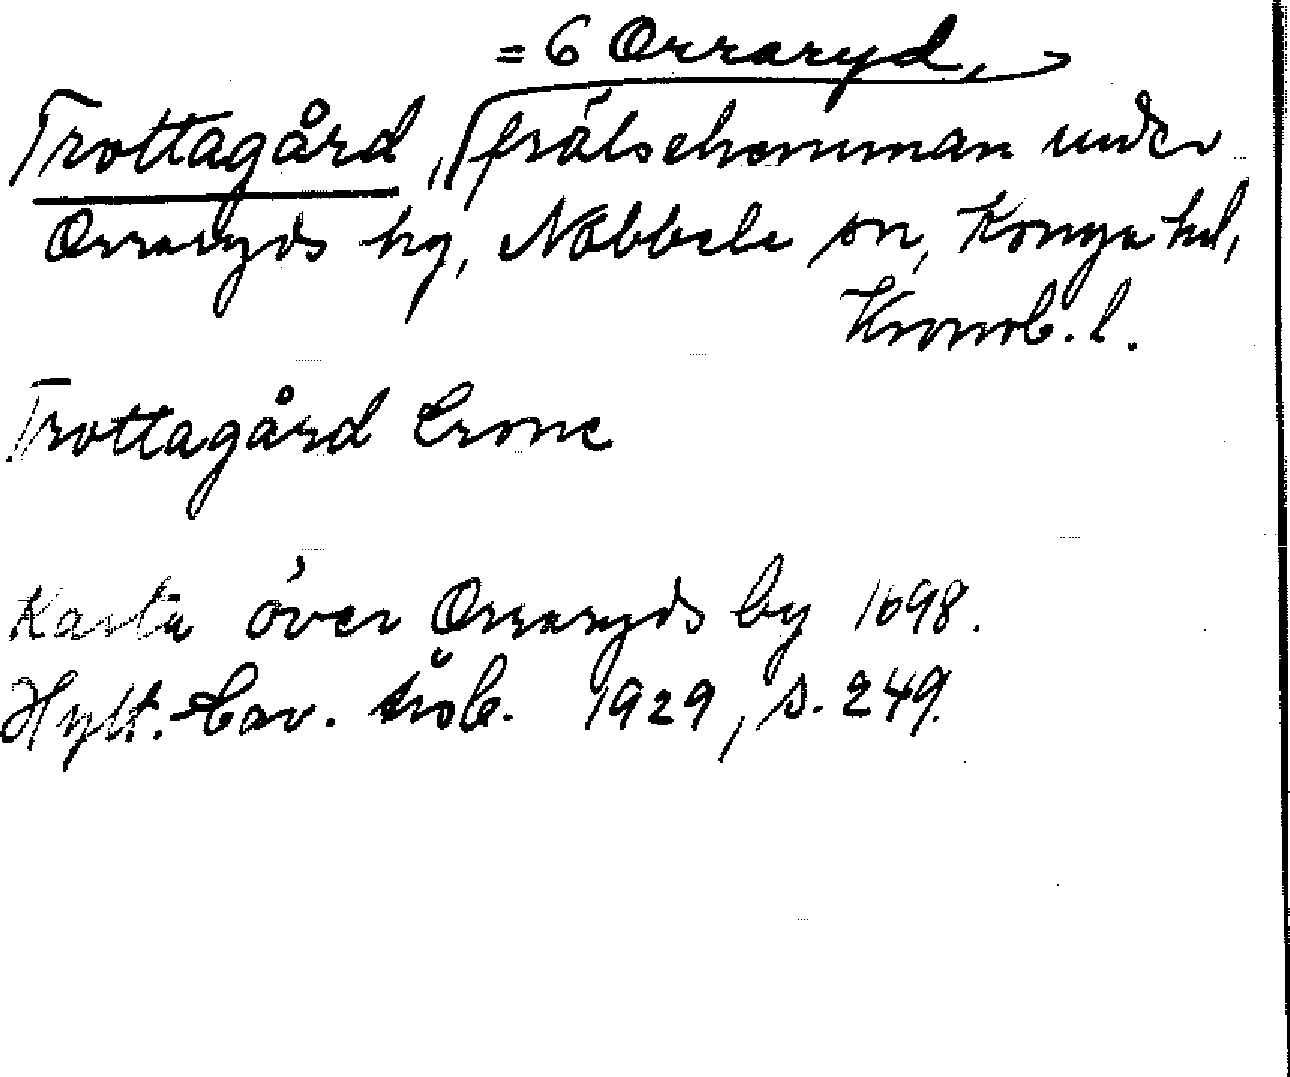 = 6 Orraryd,
Trottagård, frälsehemman under
Orraryds by, Nöbbele sn, Konga hd,
Kronob. l.
Trottagård Crone
Karta över Orraryds by 1698.
Hylt.-Cav. årsb. 1929, s. 249.